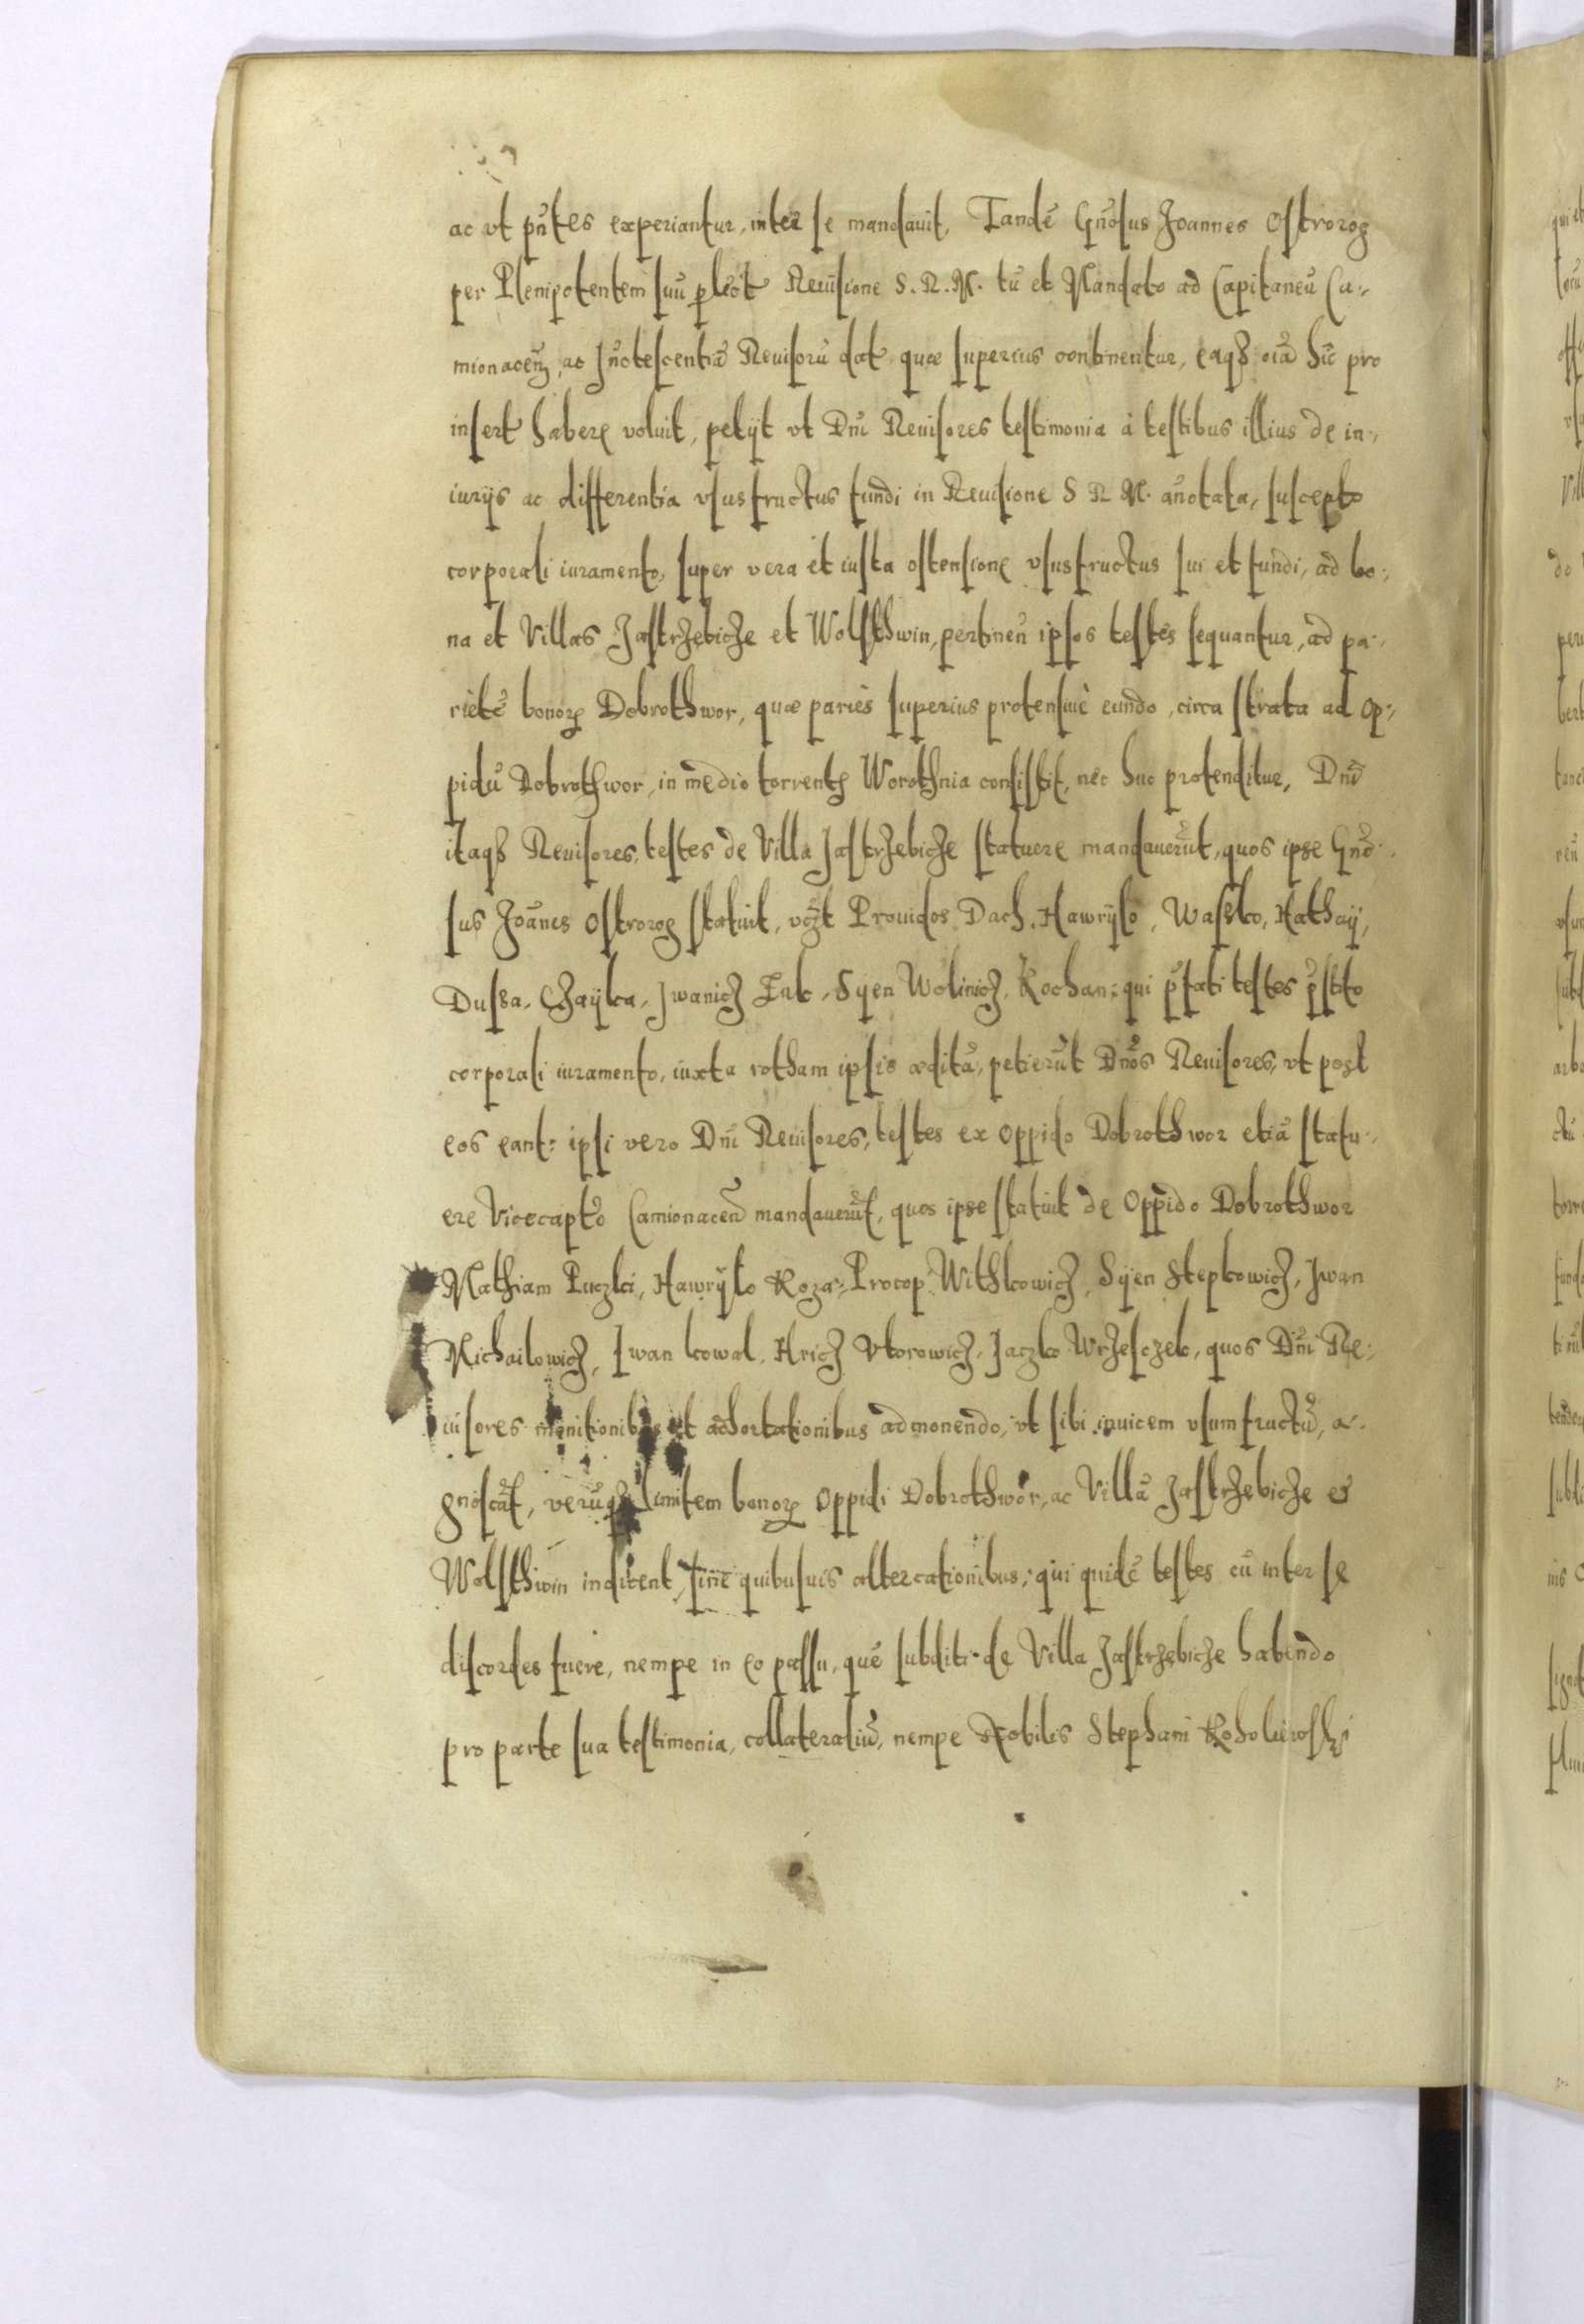 ac vt pn̄tes experiantur, inter se mandauit, Tandē Gn̄osus Joannes Ostrorog
per Plenipotentem suū Reuisione S. R. M. tū et Mandato ad Capitaneū Ca:,
mionaceñ, ac Jn̄otescentia Reuisorū dat quæ superius continentur, eaqȝ oīa hīc pro
insert haberę voluit, petijt vt Dn̄i Reuisores testimonia à testibus illius de in:,
iurijs ac differentia vsusfructus fundi in Reuisione S R M. an̄otata, suscepto
corporali iuramento, super vera et iusta ostensionę vsusfructus sui et fundi, ad bo:,
na et Villas Jastrzebicze et Wolsthwin, pertineñ ipsos testes sequantur, ad pa:,
rietē bonorꝫ Dobrothwor, quæ pariès superius protensiuè eundo, circa strata ad Op:,
pidū Dobrothwor, in medio torrentꝫ Worothnia consistit, nec huc protenditur, Dn̄i
itaqȝ Reuisores, testes de Villa Jastrzebicze statuerę mandauerūt, quos ipse Gn̄o:,
sus Joān̄es Ostrorog statuit, vcȝt Prouidos Dach, Hawrÿlo, Wasko, Hathaÿ,
Dussa, Chaÿka, Jwanicz Sak, Syen Wolinicz, Kochan: qui p̄fati testes p̄stito
corporali iuramento, iuxta rotham ipsis æditā, petierūt Dn̄os Reuisores, vt post
eos eant: ipsi vero Dn̄i Reuisores, testes ex Oppido Dobrothwor etiā statu:,
ere Vicecaptō Camionaceñ mandauerūt, quos ipse statuit de Oppido Dobrothwor
Mathiam Puczki, Hawrÿlo Koza, Procop Withkowicz, Sÿen Stepkowicz, Jwan
Michailowicz, Jwan kowal, Hricz Vtorowicz, Jaczko Wrzesczek, quos Dn̄i Re:,
uisores monitionibus et adhortationibus admonendo, vt sibi inuicem vsumfructū, a:,
gnoscāt, verūqȝ limitem bonorꝫ Oppidi Dobrothwor, ac Villā Jastrzebicze et
Wolsthwin indicent, sine quibusuis altercationibus: qui quidē testes cū inter se
discordes fuere, nempe in eo passu, quē subditi de Villa Jastrzebicze habendo
pro parte sua testimonia, collateraliū, nempe Nobilis Stephani